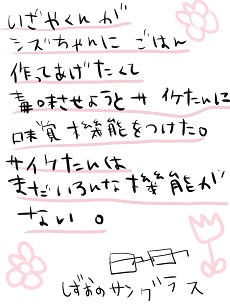 いざやくんが
シズちゃんに ごはん
作ってあげたくて
毒味させようとサイケたんに
味覚機能をつけた。
サイケたんは
まだいろんな機能が
ない。
しずおのサングラス